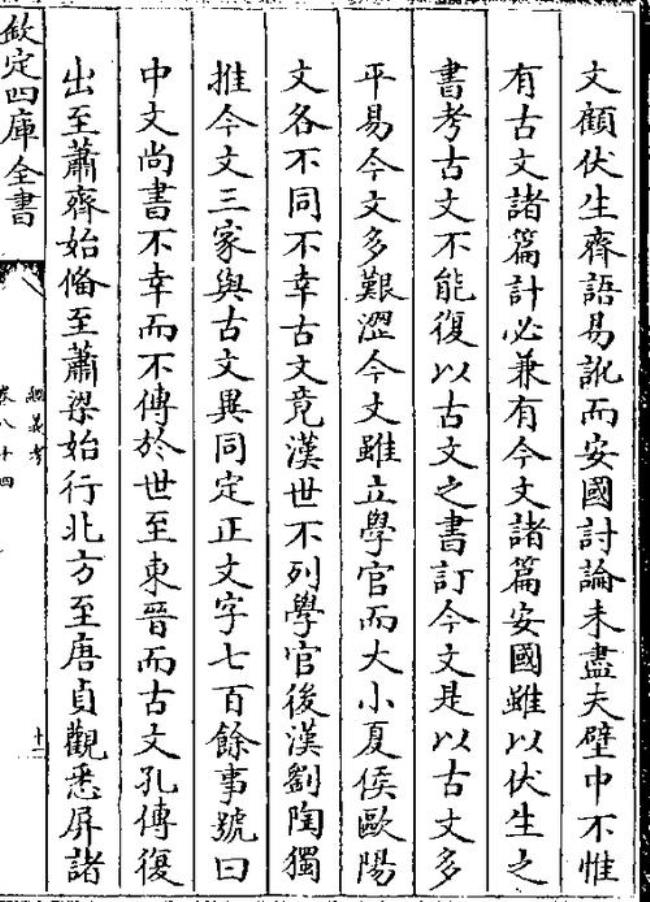 文顧伏生齊語易訛而安國討論未盡夫壁中不惟
有古文諸篇計必兼有今文諸篇安國雖以伏生之
書考古文不能復以古文之書訂今文是以古文多
平易今文多艱澀今文雖立學官而大小夏侯歐陽
文各不同不幸古文竟漢世不列學官後漢劉陶獨
推今文三家與古文異同定正文字七百餘事號曰
中文尚書不幸而不傳於世至東晉而古文孔傳復
出至蕭齊始備至蕭梁始行北方至唐貞觀悉屏諸
欽定四庫全書
經義考
卷八十四
十二